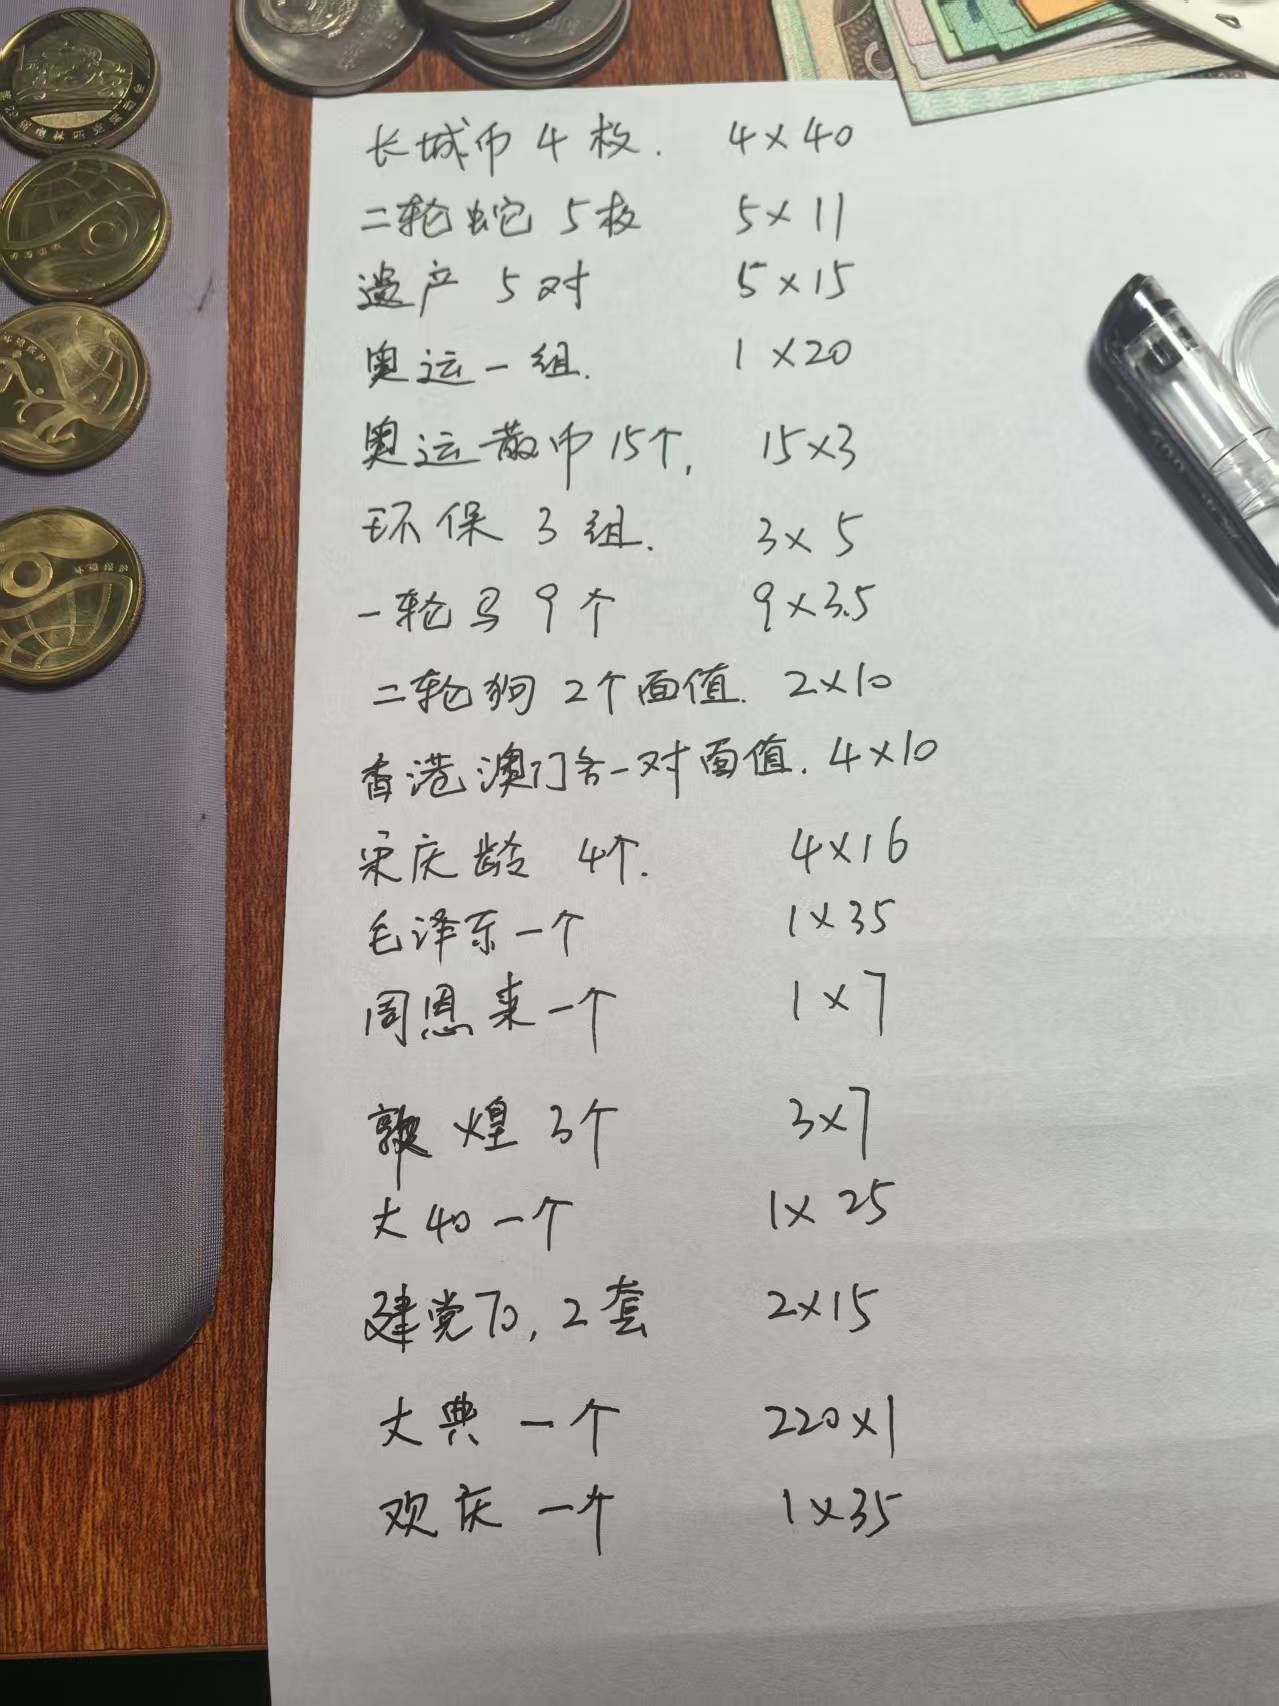 长城币 4 枚. 4×40
二轮蛇 5枚 5×11
遗产 5对 5×15
奥运一组. 1×20
奥运散币 15个, 15×3
环保 3 组. 3×5
一轮马 9个 9×3.5
二轮狗 2个面值. 2×10
香港澳门各一对面值. 4×10
宋庆龄 4个. 4×16
毛泽东一个 1×35
周恩来一个 1×7
敦煌 3个 3×7
大40一个 1×25
建党70, 2套 2×15
大典 一个 220×1
欢庆 一个 1×35